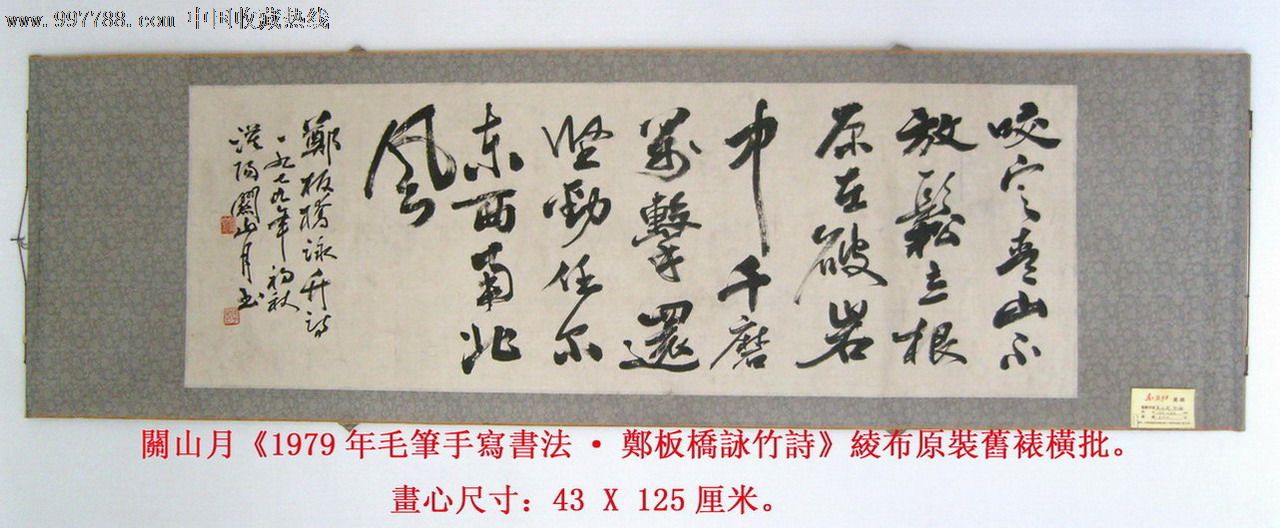 www.997788.com 中国收藏热线
咬定青山不
放鬆立根
原在破岩
中千磨
萬擊還
坚勁任尔
东西南北
风
鄭板橋詠竹詩
一九七九年初秋
漠陽關山月书
關山月《1979年毛筆手寫書法·鄭板橋詠竹詩》綾布原裝舊裱橫批。
畫心尺寸：43 X 125厘米。